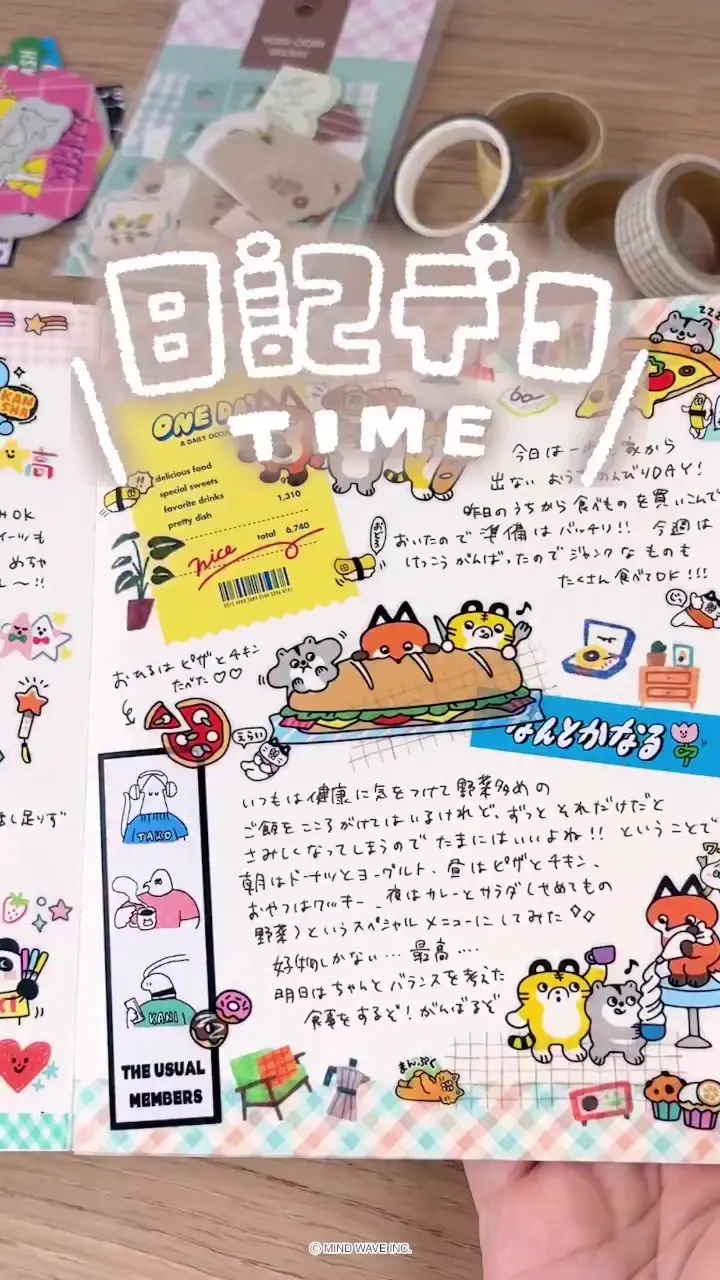 日記デコ
TIME
KAN
SHA
高
ONE DAY
A DAILY OCCU
delicious food
special sweets
favorite drinks
1,310
pretty dish
total 6,740
nice
zzz
今日は一歩も家から
出ない おうちのんびりDAY!
昨日のうちから食べものを買いこんで
おいたので 準備はバッチリ!! 今週は
けっこうがんばったのでジャンクなものも
たくさん食べてOK!!!
おひるはピザとチキン
たべた♡♡
えらい
なんとかなる
いつもは健康に気をつけて野菜多めの
ご飯をこころがけてはいるけれど、ずっとそれだけだと
さみしくなってしまうのでたまにはいいよね!! ということで
朝はドーナッツとヨーグルト、昼はピザとチキン、
おやつはクッキー、夜はカレーとサラダ(せめてもの
野菜)というスペシャルメニューにしてみた
好物しかない… 最高….
明日はちゃんとバランスを考えた
食事をするぞ! がんばるぞ
TAKO
KANI
THE USUAL
MEMBERS
まんぷく
OK
イーツも
めちゃ
し〜!!
し足りず
© MIND WAVE INC.